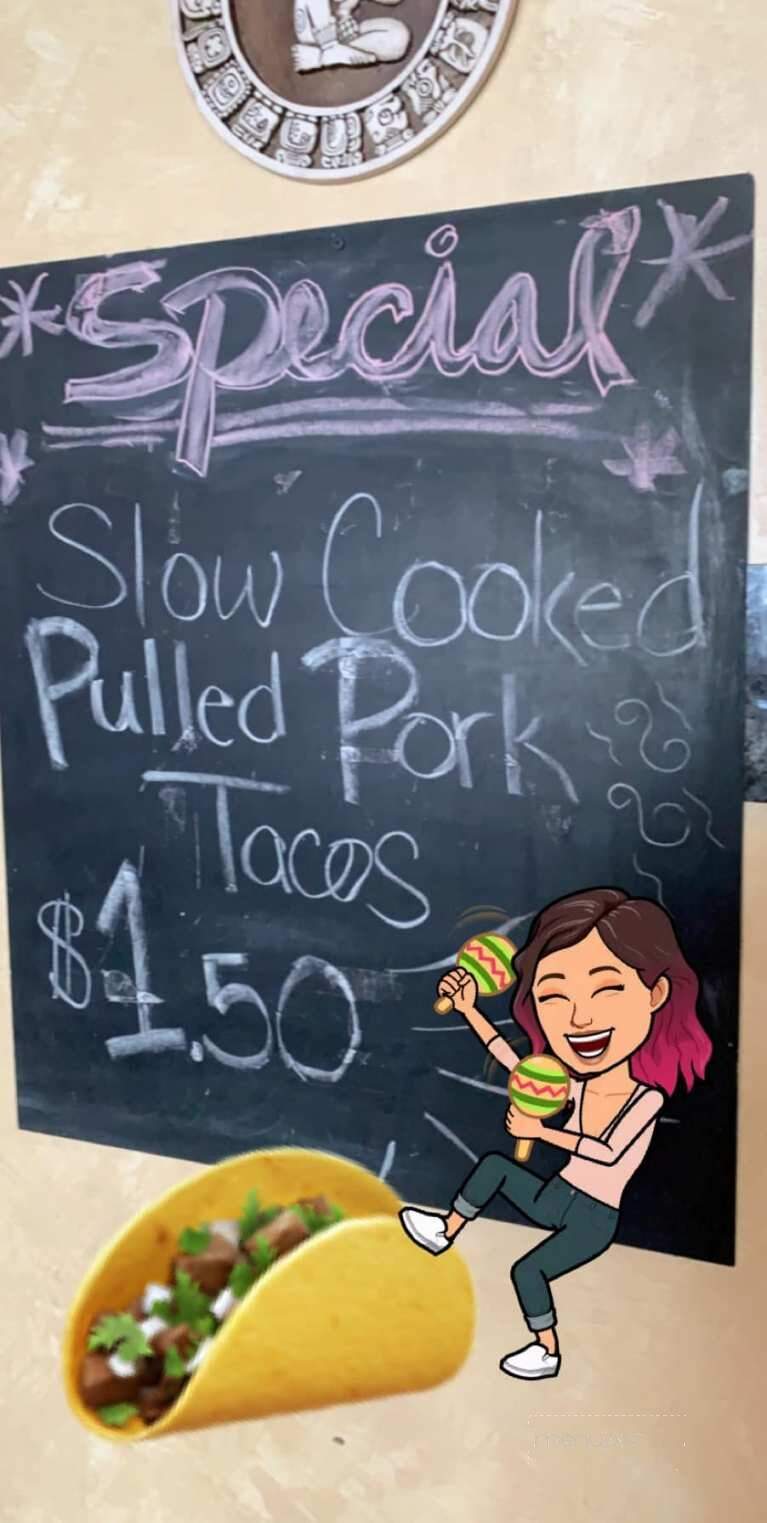 *Special*
Slow Cooked
Pulled Pork
Tacos
$1.50